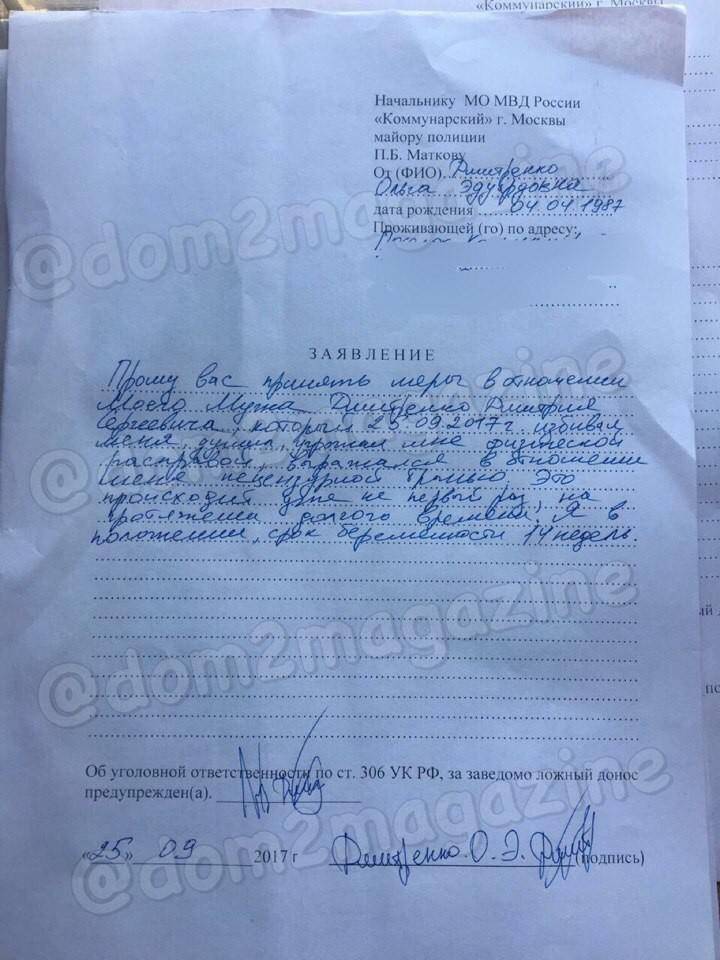 «Коммунарский» г. Москвы
Начальнику МО МВД России
«Коммунарский» г. Москвы
майору полиции
П.Б. Маткову
От (ФИО). Дмитренко
Ольга Эдуардовна
дата рождения 04.04.1987
Проживающей (го) по адресу:
ЗАЯВЛЕНИЕ
Прошу вас принять меры в отношении
Моего Мужа Дмитренко Дмитрия
Сергеевича, который 25.09.2017г избивал
меня, душил, угрожал мне физической
расправой, выражался в отношении
меня нецензурной бранью. Это
происходит уже не первый раз, на
протяжении долгого времени, Я в
положении, срок беременности 14 недель.
Об уголовной ответственности по ст. 306 УК РФ, за заведомо ложный донос
предупрежден(а).
«25» 09 2017 г Дмитренко О. Э. (подпись)
@dom2magazine
@dom2magazine
@dom2magazine
@dom2magazine